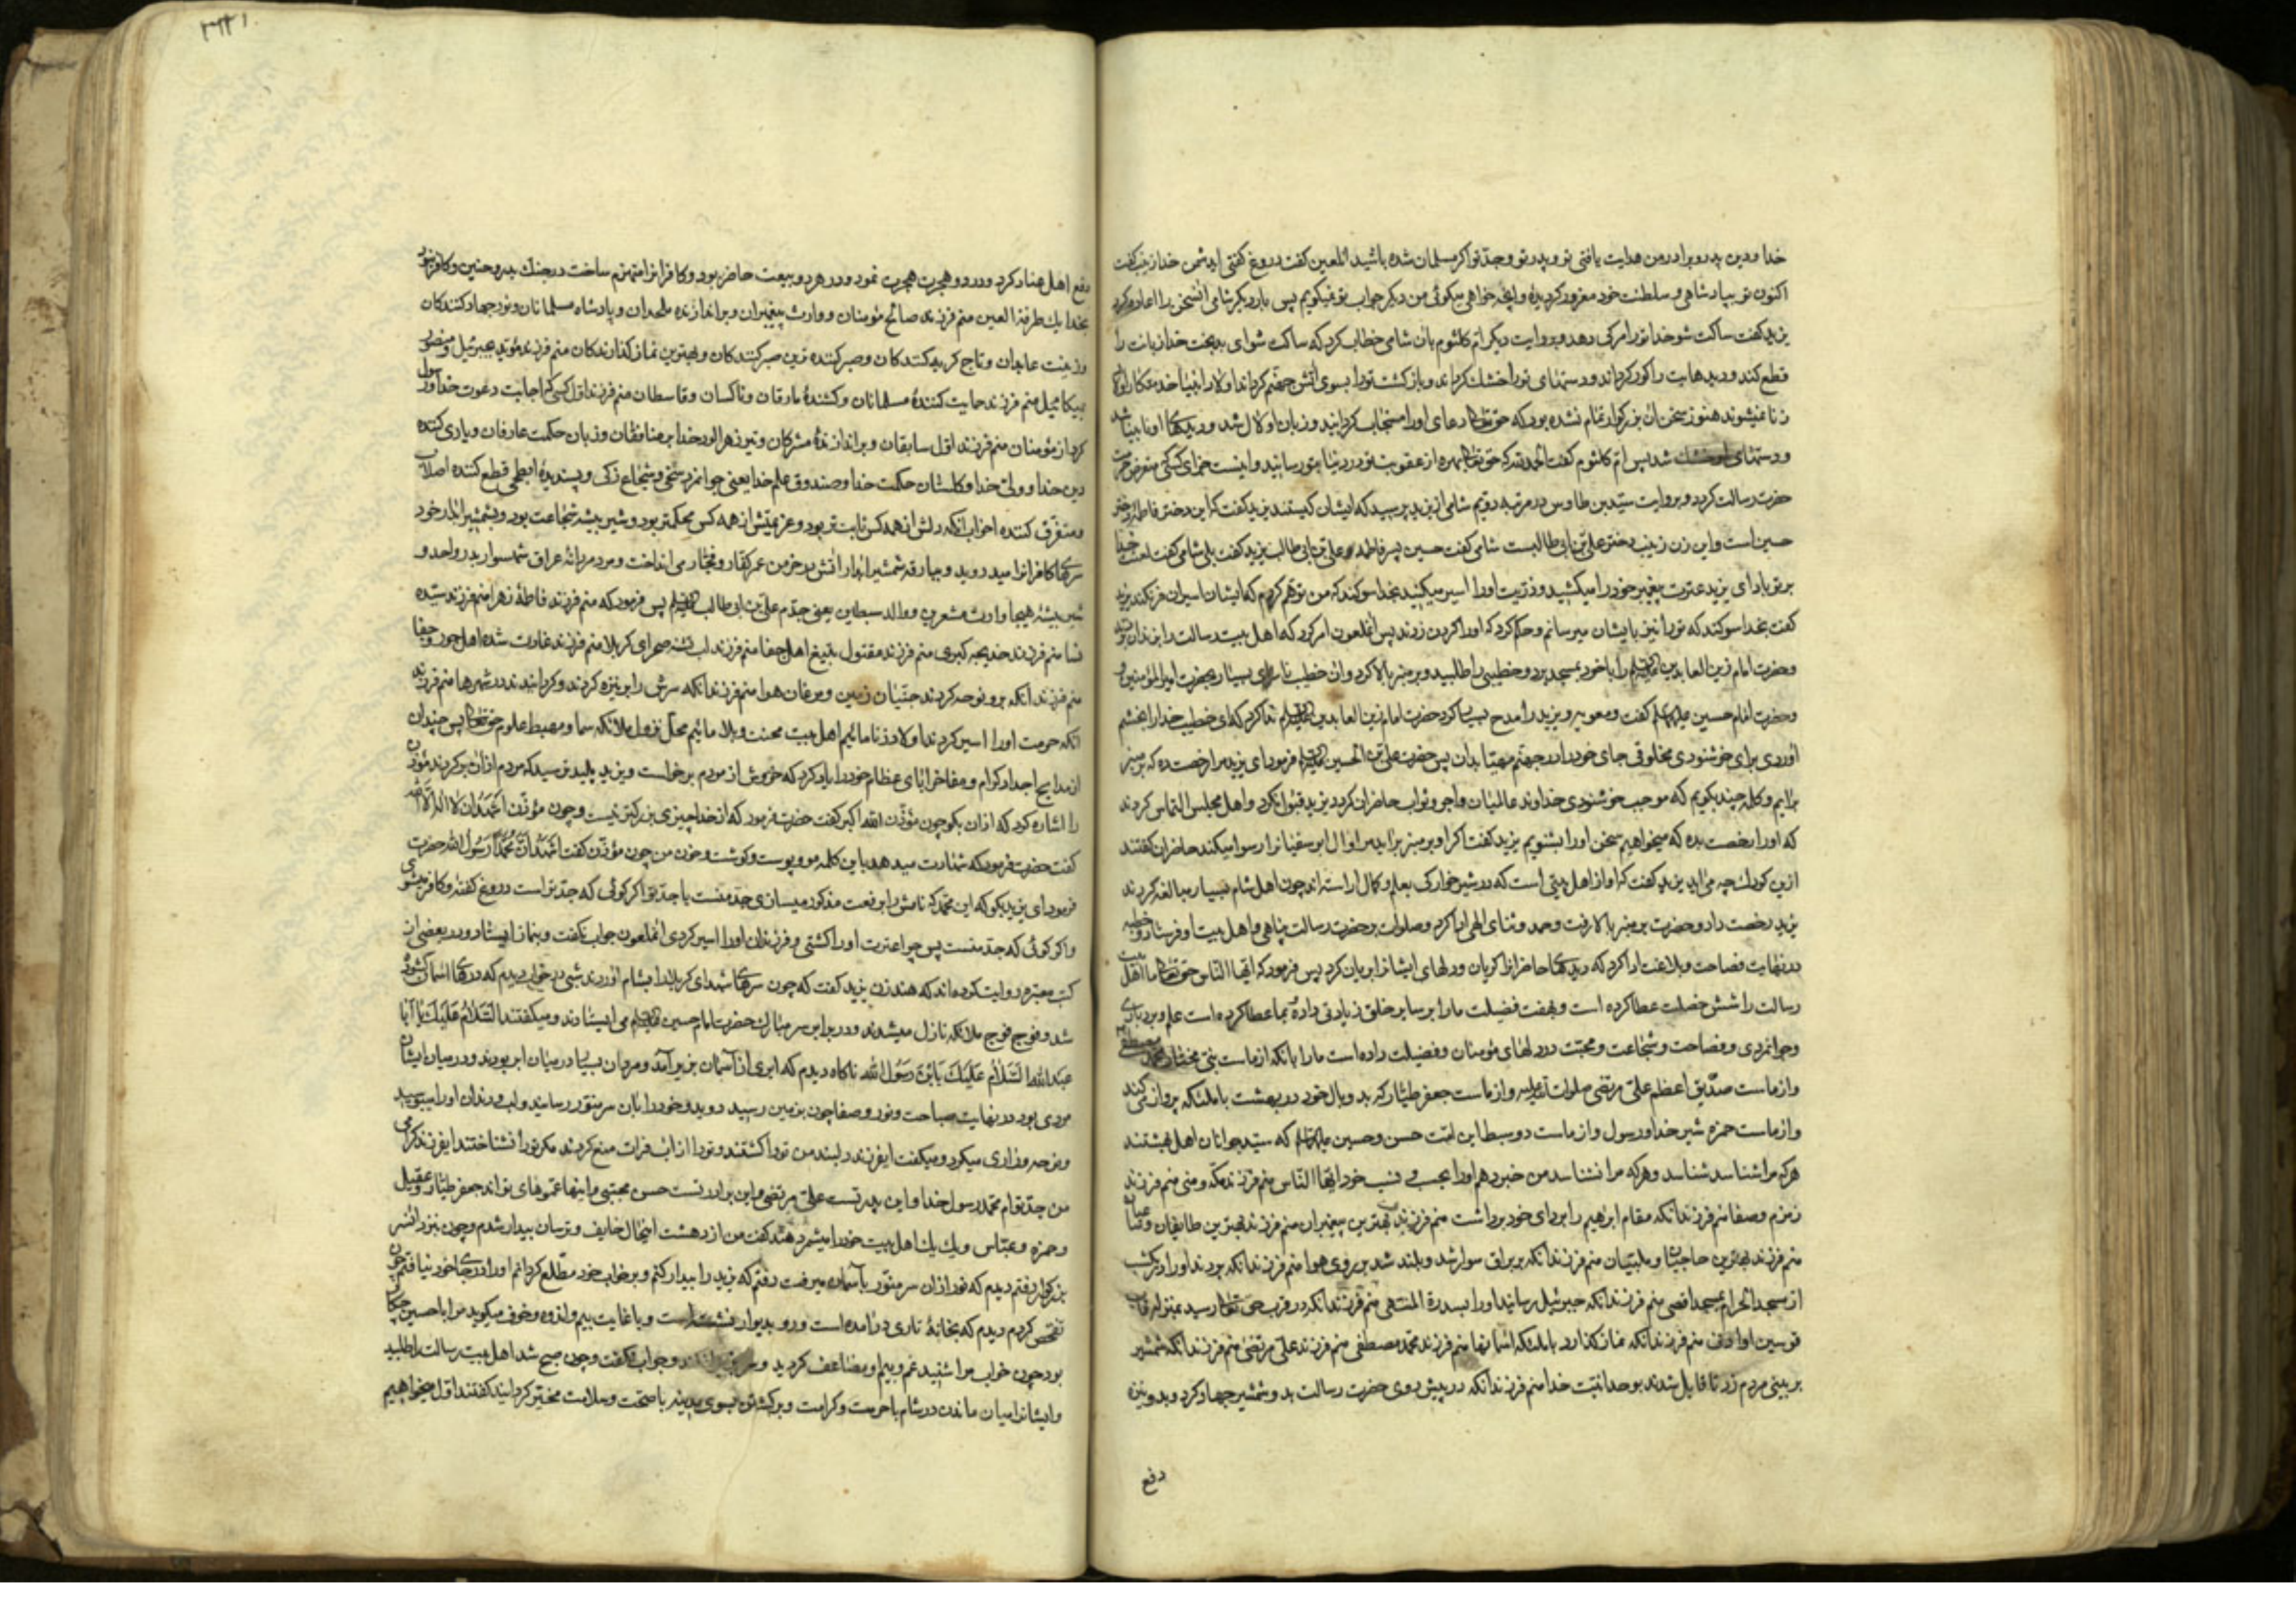 خدا ودین پدر وبرادر من هدایت یافتی تو وپدر تو وجد تو اکر مسلمان شده باشید انملعین کفت دروغ کفتی ایدشمن خدا زینب کفت
اکنون تو بپادشاهی وسلطنت خود مغرور کردیدهٔ وانچه خواهی میکوئی من دیکر جواب تو نمیکویم پس بار دیکر شامی انسخن را اعاده کرد
یزید کفت ساکت شو خدا ترا مرک دهد وبروایت دیکر ام کلثوم بان شامی خطاب کرد که ساکت شو ای بدبخت خدا زبانت را
قطع کند ودیدهایت را کور کرداند ودستهای تورا خشک کرداند وبازکشت تورا بسوی اتش جهنم کرداند اولاد انبیا خدمتکار اولاد
زنا نمیشوند هنوز سخن ان بزرکوار تمام نشده بود که حق تعالی دعای اورا مستجاب کردانید وزبان او لال شد ودیدهای او نابینا شد
ودستهای او خشک شد پس ام کلثوم کفت الحمد لله که حق تعالی بهره از عقوبت تو در دنیا بتو رسانید واینست جزای کسی که متعرض حرمت
حضرت رسالت کردد وبروایت سید بن طاوس در مرتبه دویم شامی از یزید پرسید که ایشان کیستند یزید کفت که این دختر فاطمه دختر
حسین است واین زن زینب دختر علی بن ابی طالبست شامی کفت حسین پسر فاطمه وعلی بن ابی طالب یزید کفت بلی شامی کفت لعنت خدا
بر تو باد ای یزید عترت پیغمبر خود را میکشید وذریت اورا اسیر میکنید بخدا سوکند که من توهم کردم که ایشان اسیران فرنکند یزید
کفت بخدا سوکند که تورا نیز بایشان میرسانم وحکم کرد که اورا کردن زدند پس انملعون امر کرد که اهل بیت رسالت را بزندان بردند
وحضرت امام زین العابدین علیه السلم را با خود بمسجد برد وخطیبی را طلبید وبر منبر بالا کرد وان خطیب ناسزای بسیار بحضرت امیر المؤمنین
وحضرت امام حسین علیهما السلم کفت ومعویه ویزید را مدح بسیار کرد حضرت امام زین العابدین علیه السلم ندا کرد که ای خطیب خدا را بخشم
اوردی برای خوشنودی مخلوقی جای خود را در جهنم مهیا بدان پس حضرت علی بن الحسین علیه السلم فرمود ای یزید مرا رخصت ده که بر منبر
برایم وکلمه چند بکویم که موجب خوشنودی خداوند عالمیان واجر وثواب حاضران کردد یزید قبول نکرد واهل مجلس التماس کردند
که اورا رخصت بده که میخواهیم سخن اورا بشنویم یزید کفت اکر او بر منبر براید مرا وال ابوسفیانرا رسوا میکند حاضران کفتند
ازین کودک چه می اید یزید کفت که او از اهل بیتی است که در شیرخوارکی بعلم وکمال اراسته اند چون اهل شام بسیار مبالغه کردند
یزید رخصت داد وحضرت بر منبر بالا رفت وحمد وثنای الهی ادا کرد وصلوات بر حضرت رسالت پناهی واهل بیت او فرستاد وخطبه
در نهایت فصاحت وبلاغت ادا کرد که دیدهای حاضرانرا کریان ودلهای ایشانرا بریان کرد پس فرمود که ایها الناس حق تعالی ما اهل بیت
رسالت را شش خصلت عطا کرده است وبهفت فضیلت مارا بر سایر خلق زیادتی داده بما عطا کرده است علم وبردباری
وجوانمردی وفصاحت وشجاعت ومحبت در دلهای مؤمنان وفضیلت داده است مارا بانکه از ماست نبی مختار محمد مصطفی
وازماست صدیق اعظم علی مرتضی صلوات الله علیه وازماست جعفر طیار که بدو بال خود در بهشت با ملئکه پرواز می کند
وازماست حمزه شیر خدا ورسول وازماست دو سبط این امت حسن وحسین علیهما السلم که سید جوانان اهل بهشتند
هرکه مرا شناسد شناسد وهرکه مرا نشناسد من خبر دهم اورا بحسب ونسب خود ایها الناس منم فرزند مکه ومنی منم فرزند
زمزم وصفا منم فرزند انکه مقام ابراهیم را بردای خود برداشت منم فرزند بهترین پیغمبران منم فرزند بهترین طایفان وساعیان
منم فرزند بهترین حاجیان وملبیان منم فرزند انکه بر براق سوار شد وبلند شد بر روی هوا منم فرزند انکه بردند اورا در یکشب
از مسجد الحرام بمسجد اقصی منم فرزند انکه جبرئیل رسانید اورا بسدرة المنتهی منم فرزند انکه در قرب حق تعالی رسید بمنزله قاب
قوسین او ادنی منم فرزند انکه نماز کذارد با ملئکه اسمانها منم فرزند محمد مصطفی منم فرزند علی مرتضی منم فرزند انکه شمشیر
بر بینی مردم زد تا قایل شدند بوحدانیت خدا منم فرزند انکه در پیش روی حضرت رسالت بدو شمشیر جهاد کرد وبدو نیزه
دفع
دفع اهل عناد کرد ودر دو هجرت هجرت نمود ودر هر دو بیعت حاضر بود وکافرانرا منهزم ساخت در جنک بدر وحنین وکافر نبود
بخدا یک طرفة العین منم فرزند صالح مؤمنان ووارث پیغمبران وبراندازنده ملحدان وپادشاه مسلمانان ونور جهاد کنندکان
وزینت عابدان وتاج کریه کنندکان وصبر کننده ترین صبر کنندکان وبهترین نماز کذارندکان منم فرزند مؤید بجبرئیل ومنصور
بمیکائیل منم فرزند حمایت کنندهٔ مسلمانان وکشندهٔ مارقان وناکسان وقاسطان منم فرزند اول کسی که اجابت دعوت خدا ورسول
کرد از مؤمنان منم فرزند اول سابقان وبراندازندهٔ مشرکان وتیر زهرالود خدا بر منافقان وزبان حکمت عارفان ویاری کننده
دین خدا وولی خدا وکلستان حکمت خدا وصندوق علم خدا یعنی جوانمرد سخی وشجاع زکی وپسندیدهٔ ابطحی قطع کننده اصلاب
ومتفرق کننده احزاب انکه دلش از همه کس ثابت تر بود وعزیمتش از همه کس محکمتر بود وشیر بیشه شجاعت بود وبشمشیر ابدار خود
سرهای کافرانرا میدروید وببارقه شمشیر ابدار اتش در خرمن عمر کفار وفجار می انداخت ومرد مردانهٔ عراق شهسوار بدر واحد و
شیر بیشهٔ هیجا وارث مشعرین ووالد سبطین یعنی جدم علی بن ابی طالب علیه السلم پس فرمود که منم فرزند فاطمهٔ زهرا منم فرزند سیده
نسا منم فرزند خدیجه کبری منم فرزند مقتول بتیغ اهل جفا منم فرزند لب تشنه صحرای کربلا منم فرزند غارت شده اهل جور وجفا
منم فرزند انکه برو نوحه کردند جنیان زمین ومرغان هوا منم فرزند انکه سرش را بر نیزه کردند وکردانیدند در شهرها منم فرزند
انکه حرمت اورا اسیر کردند اولاد زنا مائیم اهل بیت محنت وبلا مائیم محل نزول ملائکه سما ومهبط علوم حق تعالی پس چندان
از مدایح اجداد کرام ومفاخر ابای عظام خود را یاد کرد که خروش از مردم برخاست ویزید پلید ترسید که مردم ازان برکردند مؤذن
را اشاره کرد که اذان بکو چون مؤذن الله اکبر کفت حضرت فرمود که از خدا چیزی بزرکتر نیست وچون مؤذن اشهد ان لا اله الا الله
کفت حضرت فرمود که شهادت میدهد باین کلمه مو وپوست وکوشت وخون من چون مؤذن کفت اشهد ان محمدا رسول الله حضرت
فرمود ای یزید بکو که این محمد که نامش را برفعت مذکور میسازی جد منست یا جد تو اکر کوئی که جد تو است دروغ کفته وکافر میشوی
واکر کوئی که جد منست پس چرا عترت اورا کشتی وفرزندان اورا اسیر کردی انملعون جواب نکفت وبنماز ایستاد ودر بعضی از
کتب معتبره روایت کرده اند که هند زن یزید کفت که چون سرهای شهدای کربلا را بشام اوردند شبی در خواب دیدم که درهای اسمان کشوده
شد وفوج فوج ملائکه نازل میشدند ودر برابر سر مبارک حضرت امام حسین علیه السلم می ایستادند ومیکفتند السلام علیک یا ابا
عبدالله السلام علیک یا بن رسول الله ناکاه دیدم که ابری از آسمان بزیر آمد ومردان بسیار در میان ابر بودند ودر میان ایشان
مردی بود در نهایت صباحت ونور وصفا چون بزمین رسید دوید وخود را بان سر منور رسانید ولب ودندان اورا میبوسید
ونوحه وزاری میکرد ومیکفت ایفرزند دلبند من تورا کشتند وتورا از اب فرات منع کردند مکر تورا نشناختند ایفرزند کرامی
من جد توام محمد رسول خدا واین پدر تست علی مرتضی واین برادر تست حسن مجتبی واینها عموهای تواند جعفر طیار وعقیل
وحمزه وعباس ویک یک اهل بیت خود را میشمرد هند کفت من از دهشت اینحال خایف وترسان بیدار شدم وچون بنزد انسر
بزرکوار رفتم دیدم که نور ازان سر منور باسمان میرفت رفتم که یزید را بیدار کنم وبر خواب خود مطلع کردانم اورا در جای خود نیافتم چون
تفحص کردم دیدم که بخانهٔ تاری درامده است ورو بدیوار نشسته است وبا غایت بیم واندوه وخوف میکوید مرا با حسین چکار
بود چون خواب مرا شنید غم وبیم او مضاعف کردید وسر وجواب نکفت وچون صبح شد اهل بیت رسالت را طلبید
وایشانرا میان ماندن در شام با حرمت وکرامت وبرکشتن بسوی مدینه با صحت وسلامت مخیر کردانید کفتند اول میخواهیم